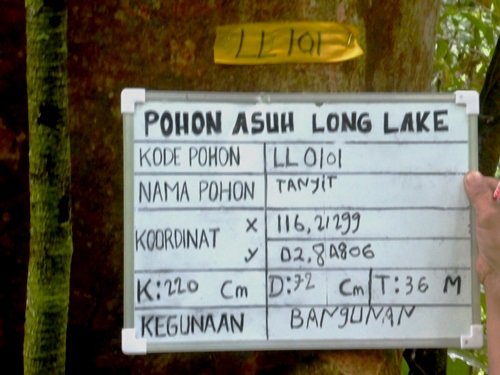 LL 101
POHON ASUH LONG LAKE
KODE POHON LL 0101
NAMA POHON TANYIT
KOORDINAT X 116,21299
Y 02,80806
K: 220 Cm D: 72 Cm T: 36 M
KEGUNAAN BANGUNAN